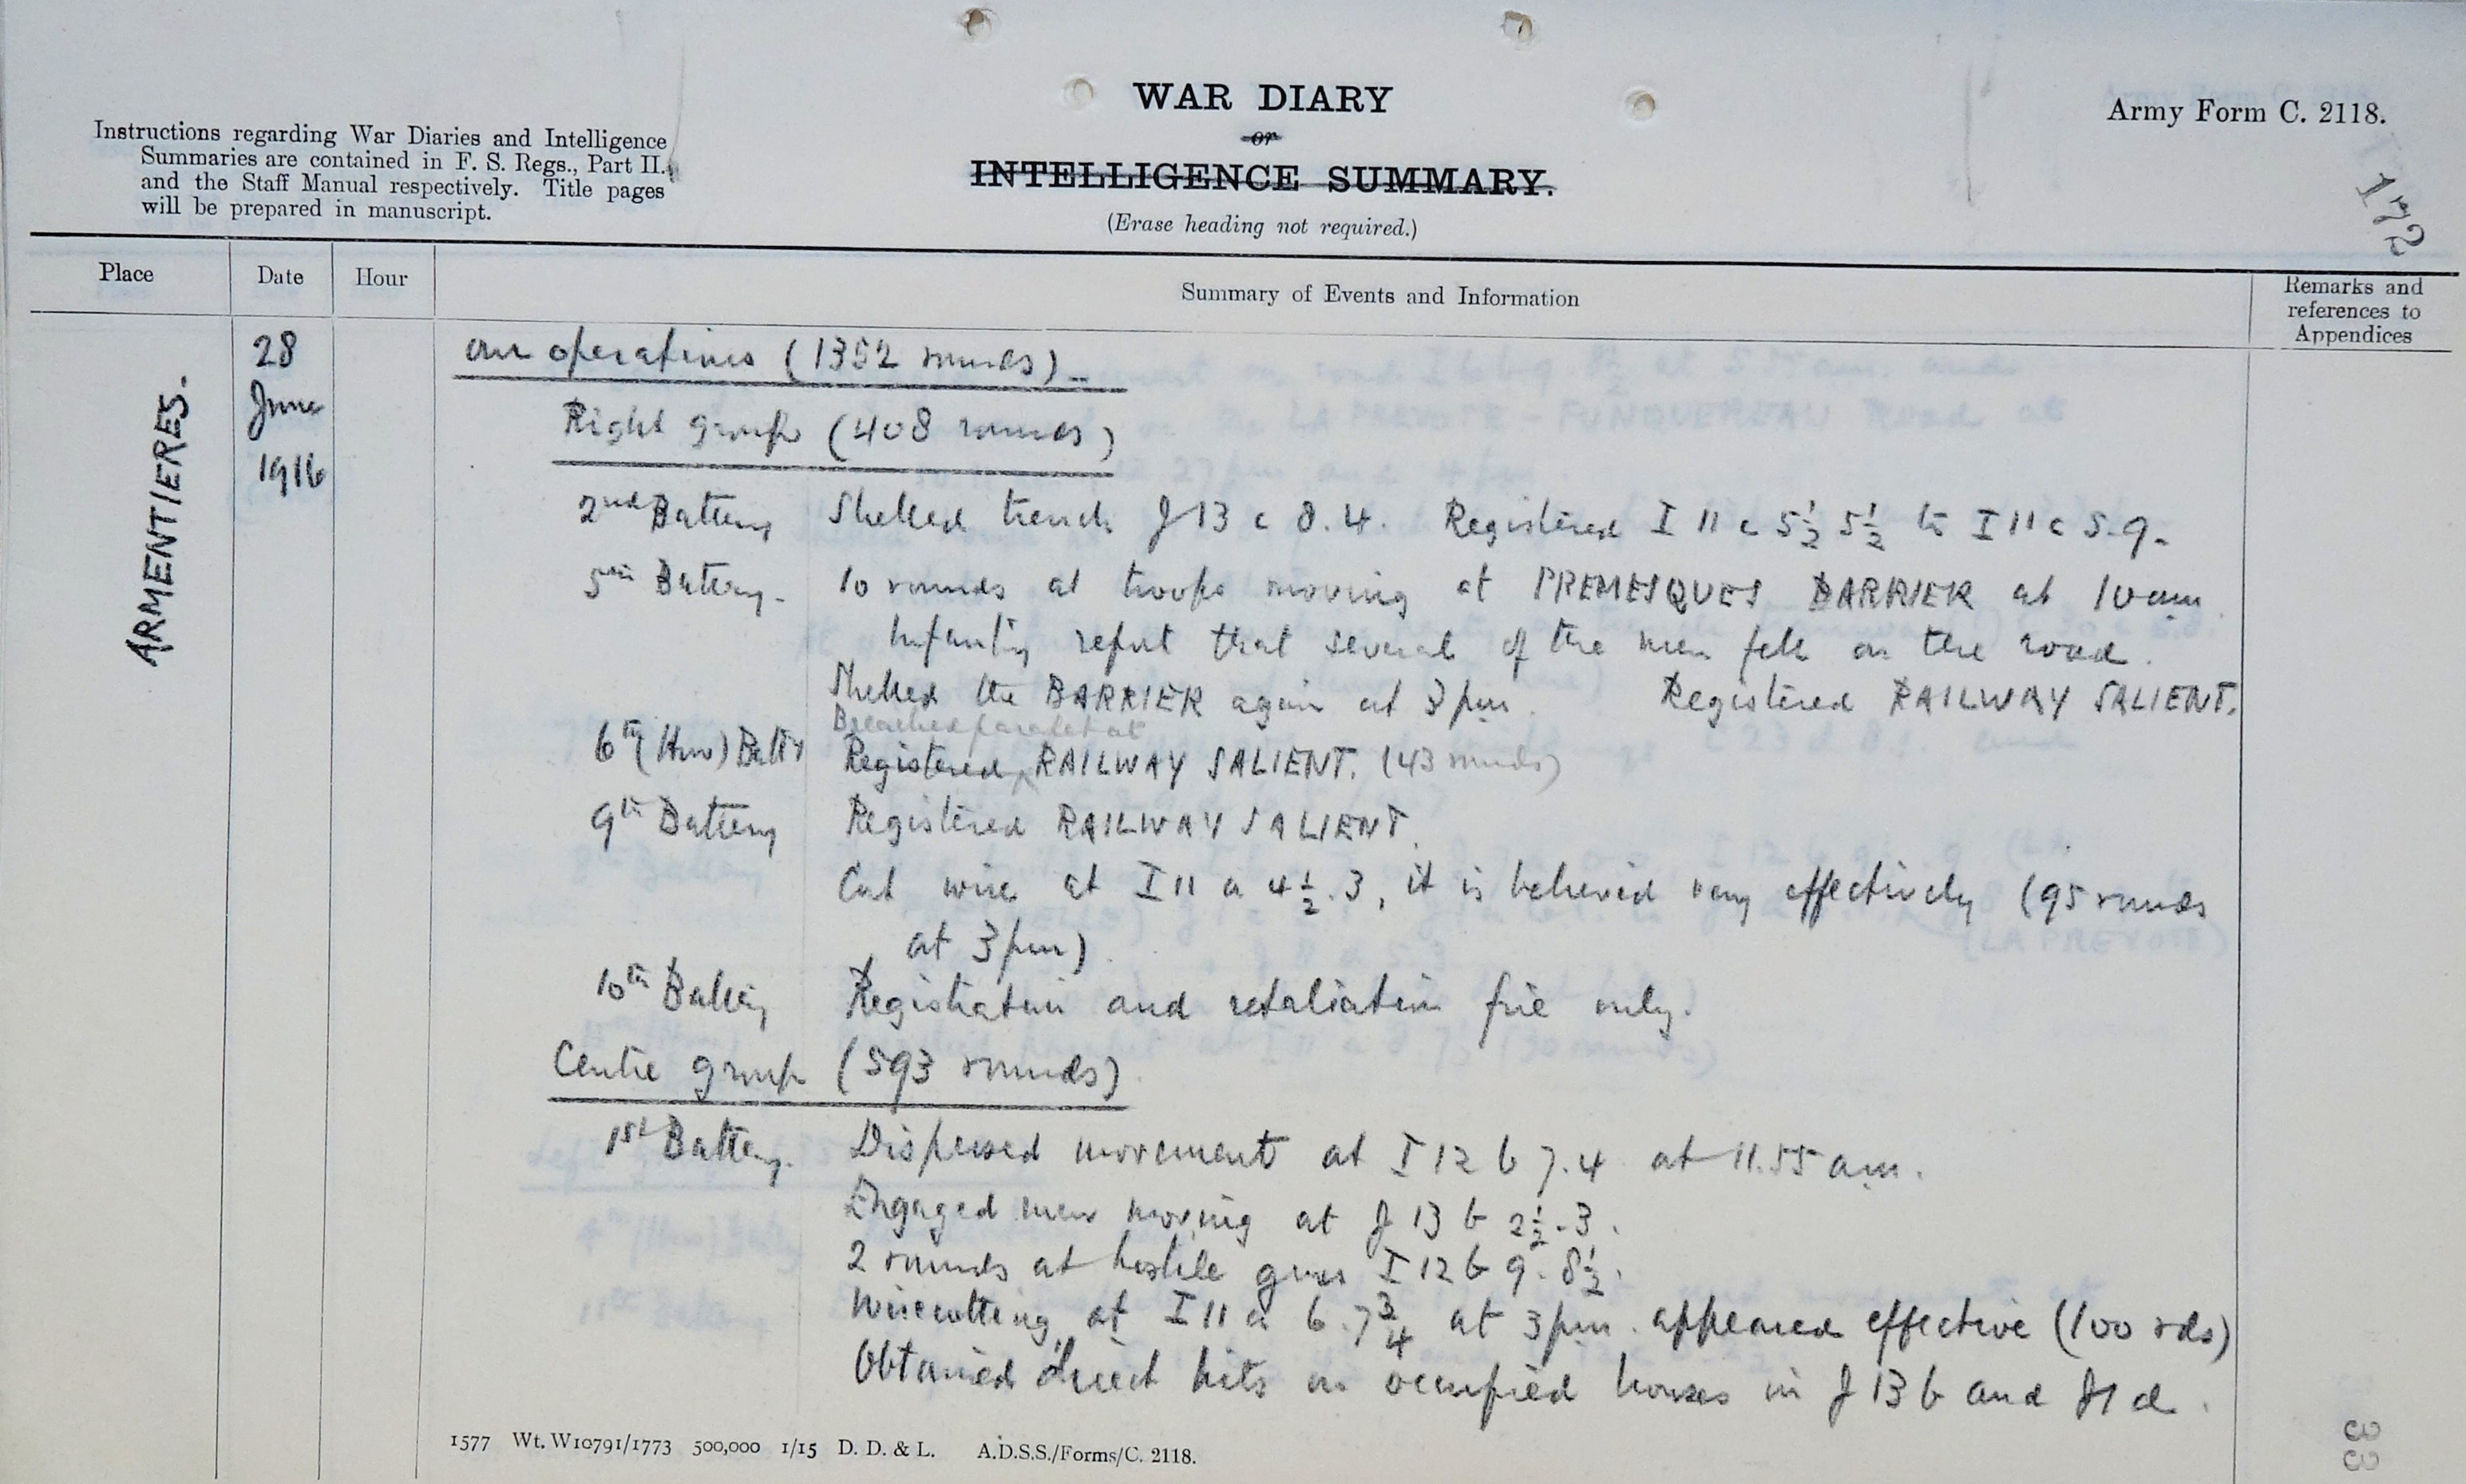 WAR DIARY
or
INTELLIGENCE SUMMARY.
(Erase heading not required.)
Army Form C. 2118.
172
Instructions regarding War Diaries and Intelligence
Summaries are contained in F. S. Regs., Part II.,
and the Staff Manual respectively. Title pages
will be prepared in manuscript.
Place Date Hour Summary of Events and Information Remarks and
references to
Appendices
ARMENTIERES.
28
June
1916
Our operations (1352 rounds)
Right group (408 rounds)
2nd Battery Shelled trench J 13 c 8.4. Registered I 11 c 5½ 5½ to I 11 c 5.9.
5th Battery. 10 rounds at troops moving at PREMESQUES BARRIER at 10 am.
Infantry report that several of the men fell on the road.
Shelled the BARRIER again at 3 pm. Registered RAILWAY SALIENT.
Breached parapet at
6th (How) Batty Registered RAILWAY SALIENT. (43 rounds)
9th Battery Registered RAILWAY SALIENT.
Cut wire at I 11 a 4½.3, it is believed very effectively (95 rounds
at 3 pm).
10th Battery Registration and retaliation fire only.
Centre group (593 rounds)
1st Battery. Dispersed movement at I 12 b 7.4 at 11.55 am.
Engaged men moving at J 13 b 2½.3.
2 rounds at hostile guns I 12 b 9.8½.
Wirecutting at I 11 a 6.7¾ at 3 pm. appeared effective (100 rds)
Obtained direct hits on occupied houses in J 13 b and J 1 d.
1577 Wt. W10791/1773 500,000 1/15 D. D. & L. A.D.S.S./Forms/C. 2118.
33